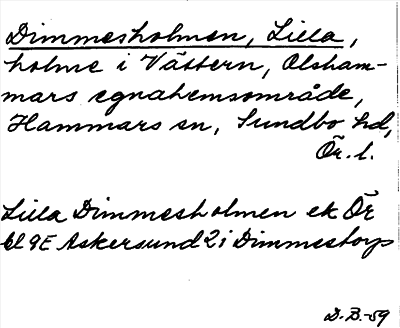 Dimmesholmen, Lilla,
holme i Vättern, Olsham-
mars egnahemsområde,
Hammars sn, Sundbo hd,
Ör. l.
Lilla Dimmesholmen ek Ör
bl 9E Askersund 2 i Dimmestorp
D. B. -59